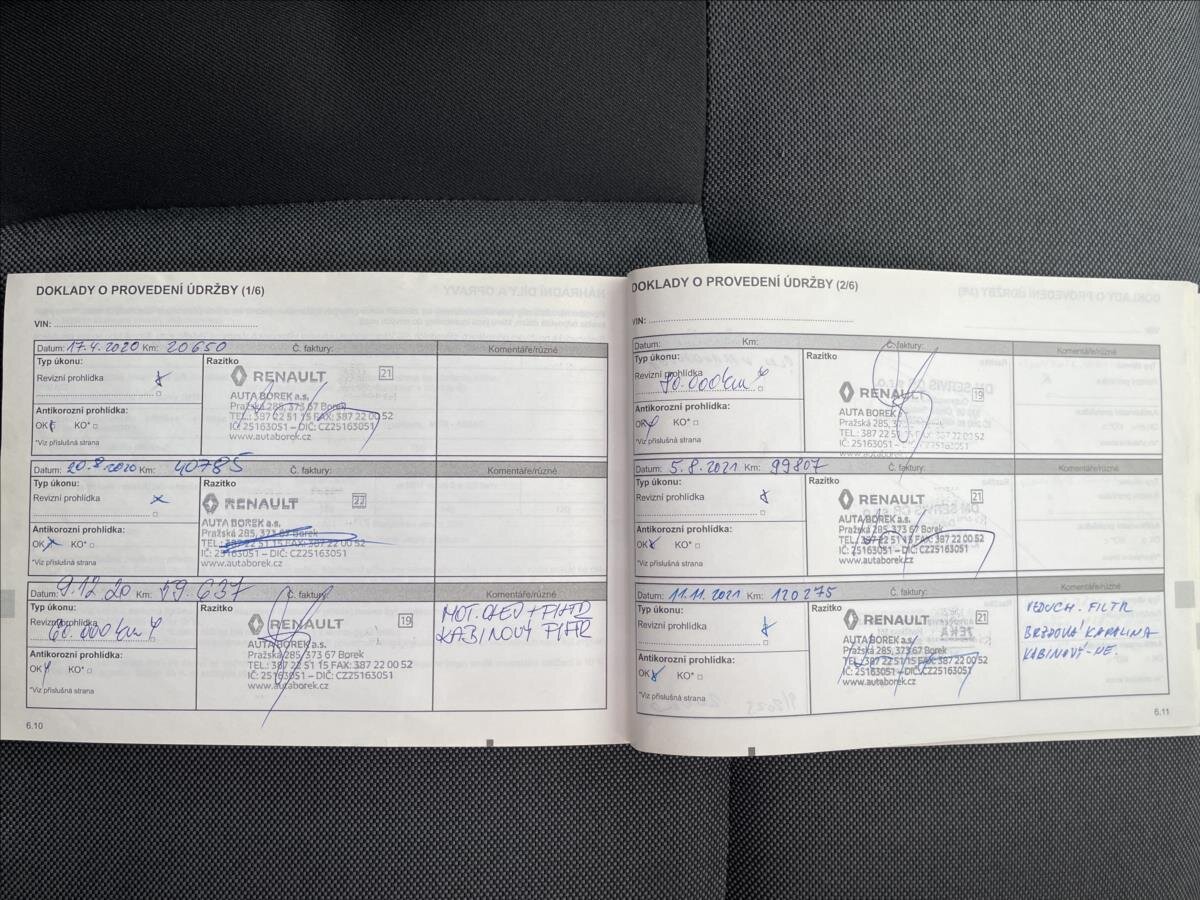 DOKLADY O PROVEDENÍ ÚDRŽBY (1/6)
VIN:
Datum: 17.4.2020 Km: 20650 Č. faktury: Komentáře/různé
Typ úkonu:
Revizní prohlídka
Antikorozní prohlídka:
OK KO*
*Viz příslušná strana
Razítko
RENAULT 21
AUTA BOREK a.s.
Pražská 285, 373 67 Borek
TEL.: 387 22 51 15 FAX: 387 22 00 52
IČ: 25163051 – DIČ: CZ25163051
www.autaborek.cz
Datum: 20.8.2020 Km: 40785 Č. faktury: Komentáře/různé
Typ úkonu:
Revizní prohlídka
Antikorozní prohlídka:
OK KO*
*Viz příslušná strana
Razítko
RENAULT 22
AUTA BOREK a.s.
Pražská 285, 373 67 Borek
TEL.: 387 22 51 15 FAX: 387 22 00 52
IČ: 25163051 – DIČ: CZ25163051
www.autaborek.cz
Datum: 9.12.20 Km: 59.637 Č. faktury: Komentáře/různé
Typ úkonu:
Revizní prohlídka
60.000 km
Antikorozní prohlídka:
OK KO*
*Viz příslušná strana
Razítko
RENAULT 19
AUTA BOREK a.s.
Pražská 285, 373 67 Borek
TEL.: 387 22 51 15 FAX: 387 22 00 52
IČ: 25163051 – DIČ: CZ25163051
www.autaborek.cz
MOT. OLEJ + FILTR
KABINOVÝ FILTR
6.10
DOKLADY O PROVEDENÍ ÚDRŽBY (2/6)
VIN:
Datum: Km: Č. faktury: Komentáře/různé
Typ úkonu:
Revizní prohlídka
.000 km
Antikorozní prohlídka:
OK KO*
*Viz příslušná strana
Razítko
RENAULT 19
AUTA BOREK
Pražská 285,
TEL.: 387 22 51 15 FAX: 387 22 00 52
IČ: 25163051 – DIČ: CZ25163051
www.autaborek.cz
Datum: 5.8.2021 Km: 99807 Č. faktury: Komentáře/různé
Typ úkonu:
Revizní prohlídka
Antikorozní prohlídka:
OK KO*
*Viz příslušná strana
Razítko
RENAULT 21
AUTA BOREK a.s.
Pražská 285, 373 67 Borek
TEL.: 387 22 51 15 FAX: 387 22 00 52
IČ: 25163051 – DIČ: CZ25163051
www.autaborek.cz
Datum: 11.11.2021 Km: 120275 Č. faktury: Komentáře/různé
Typ úkonu:
Revizní prohlídka
Antikorozní prohlídka:
OK KO*
*Viz příslušná strana
Razítko
RENAULT 21
AUTA BOREK a.s.
Pražská 285, 373 67 Borek
TEL.: 387 22 51 15 FAX: 387 22 00 52
IČ: 25163051 – DIČ: CZ25163051
www.autaborek.cz
VZDUCH. FILTR
BRZDOVÁ KAPALINA
KABINOVÝ - NE.
6.11